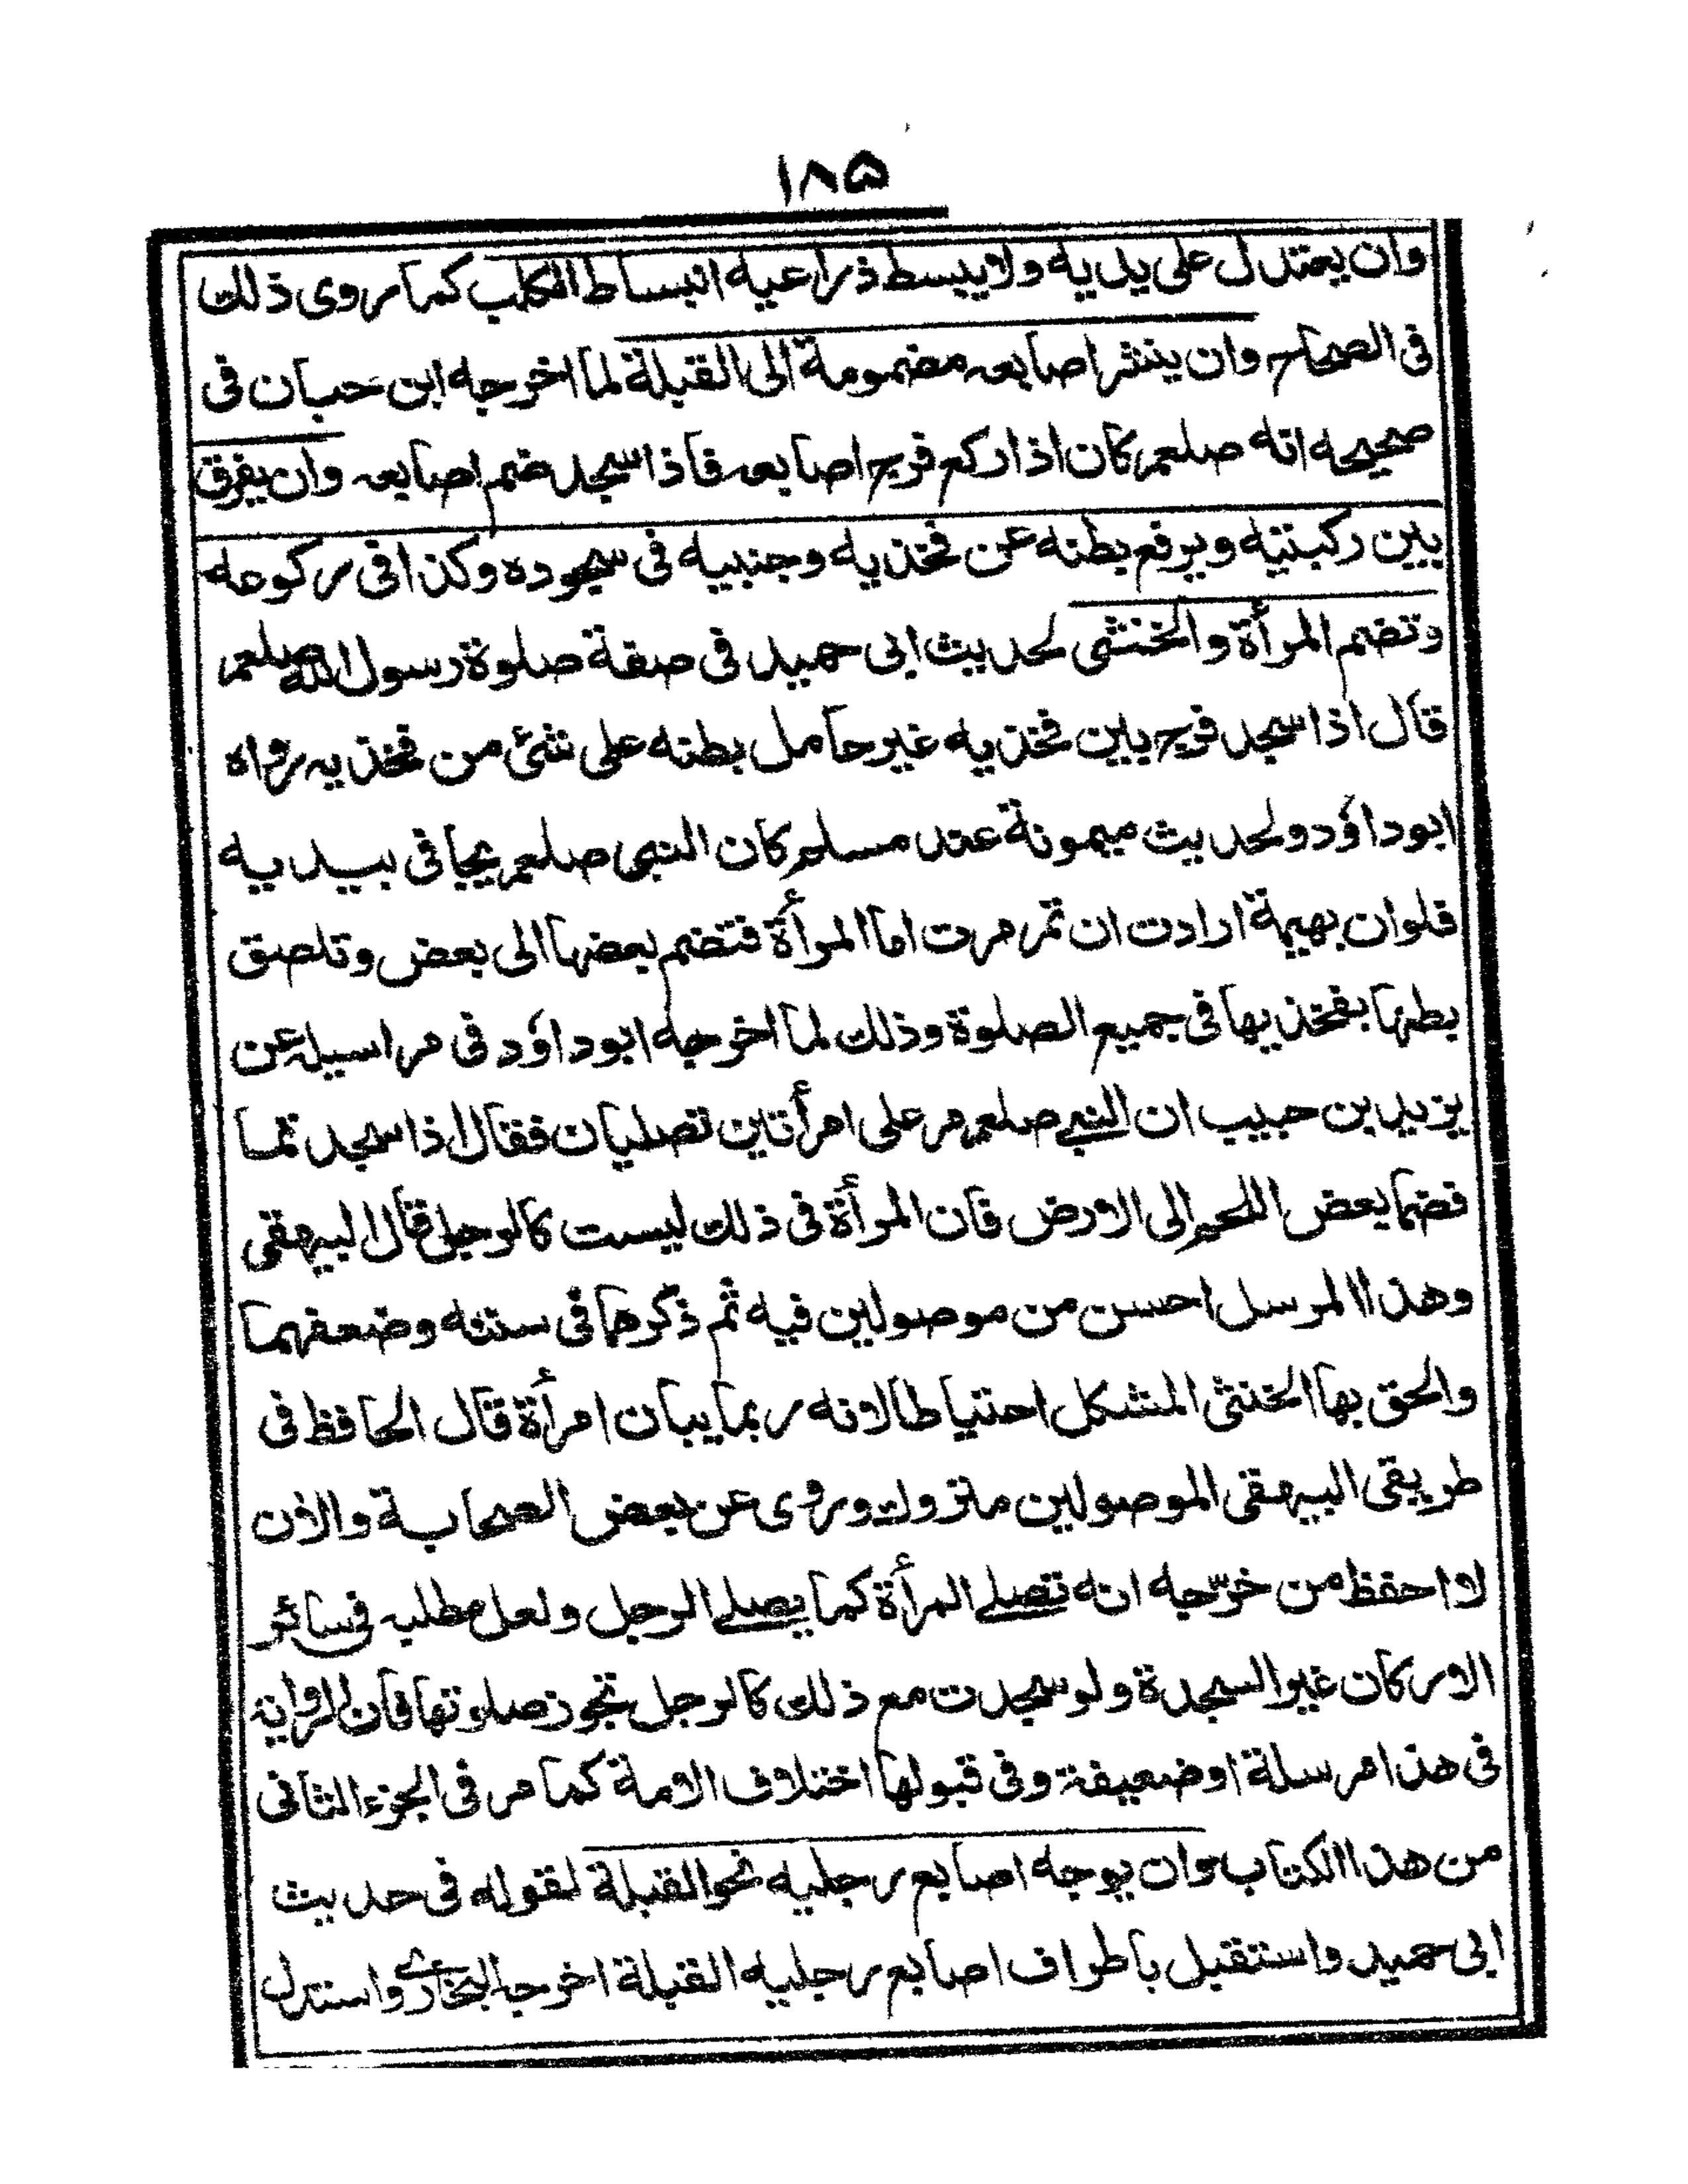 ١٨٥
وان يعتدل على يديه ولا يبسط ذراعيه انبساط الكلب كما روى ذلك
فى الصحاح وان ينشر اصابعه مضمومة الى القبلة لما اخرجه ابن حبان فى
صحيحه انه صلعم كان اذا ركع فرج اصابعه فاذا سجد ضم اصابعه وان يفرق
بين ركبتيه ويرفع بطنه عن فخذيه وجنبيه فى سجوده وكذا فى ركوعه
وتضم المرأة والخنثى لحديث ابى حميد فى صفة صلوة رسول الله صلعم
قال اذا سجد فرج بين فخذيه غير حامل بطنه على شئ من فخذيه رواه
ابوداؤد ولحديث ميمونة عند مسلم كان النبى صلعم يجافى بيديه
فلوان بهيمة ارادت ان تمر مرت اما المرأة فتضم بعضها الى بعض وتلصق
بطنها بفخذيها فى جميع الصلوة وذلك لما اخرجه ابوداؤد فى مراسيله عن
يزيد بن حبيب ان النبے صلعم مر على امرأتين تصليان فقال اذا سجد تما
فضما بعض اللحم الى الارض فان المرأة فى ذلك ليست كالرجل قال البيهقى
وهذا المرسل احسن من موصولين فيه ثم ذكرهما فى سننه وضعفهما
والحق بها الخنثى المشكل احتياطا لانه ربما يبان امرأة قال الحافظ فى
طريقى البيهقى الموصولين متروك وروى عن بعض الصحابة والان
لا احفظ من خرّجه انه تصلے المرأة كما يصلے الرجل ولعل مطلبه فى سائر
الاركان غير السجدة ولو سجدت مع ذلك كالرجل تجوز صلوتها فان الرواية
فى هذا مرسلة او ضعيفة وفى قبولها اختلاف الامة كما مر فى الجزء الثانى
من هذا الكتاب وان يوجه اصابع رجليه نحو القبلة لقوله فى حديث
ابى حميد واستقبل باطراف اصابع رجليه القبلة اخرجه البخارے واستدل